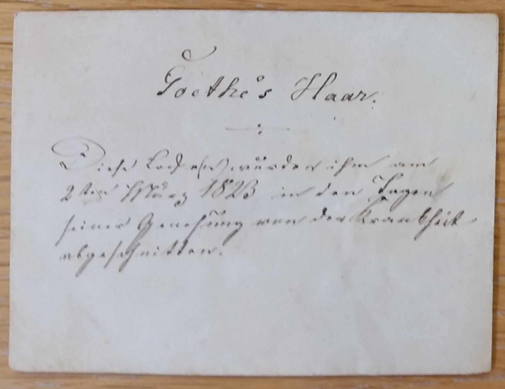 Goethe's Haar.
Diese Locke(n) wurden ihm am
2ten März 1823 in den Tagen
seiner Genesung von der Krankheit
abgeschnitten.